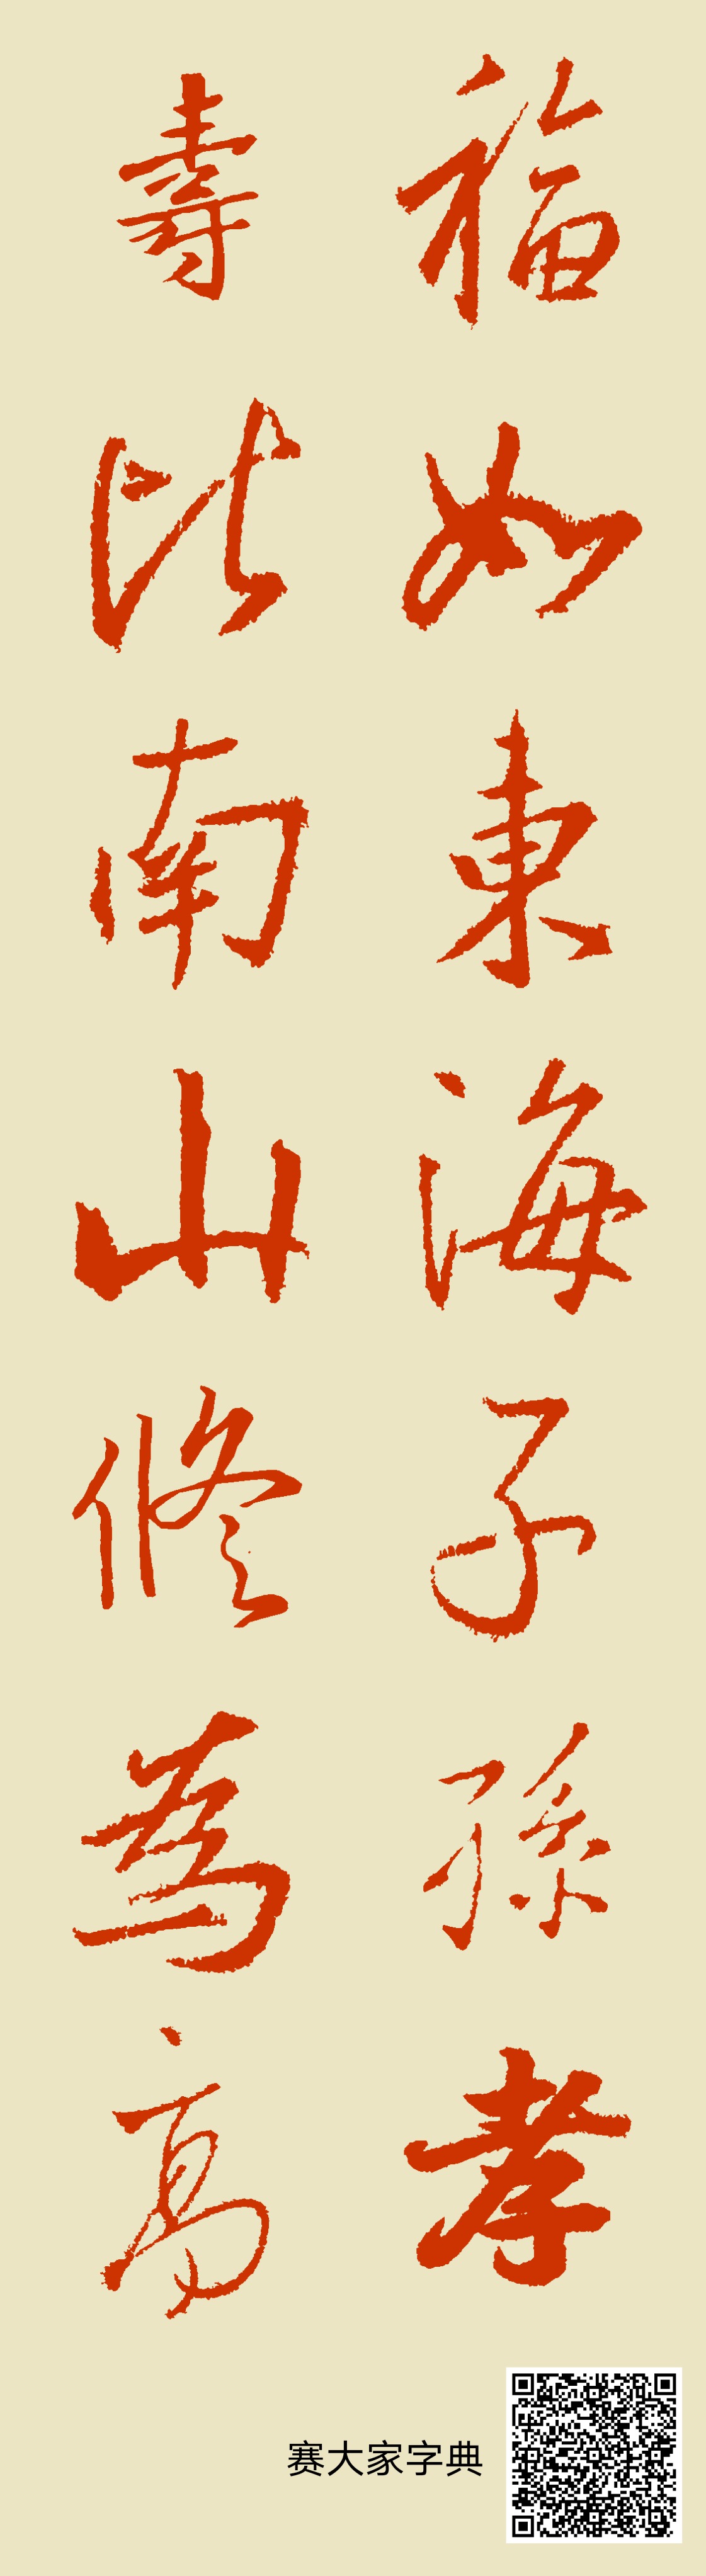 福如東海子孫孝
壽比南山修為高
赛大家字典